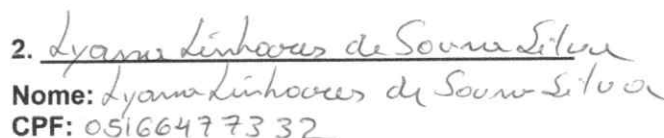 2. Lyana Linhares de Sousa Silva
Nome: Lyana Linhares de Sousa Silva
CPF: 05166477332